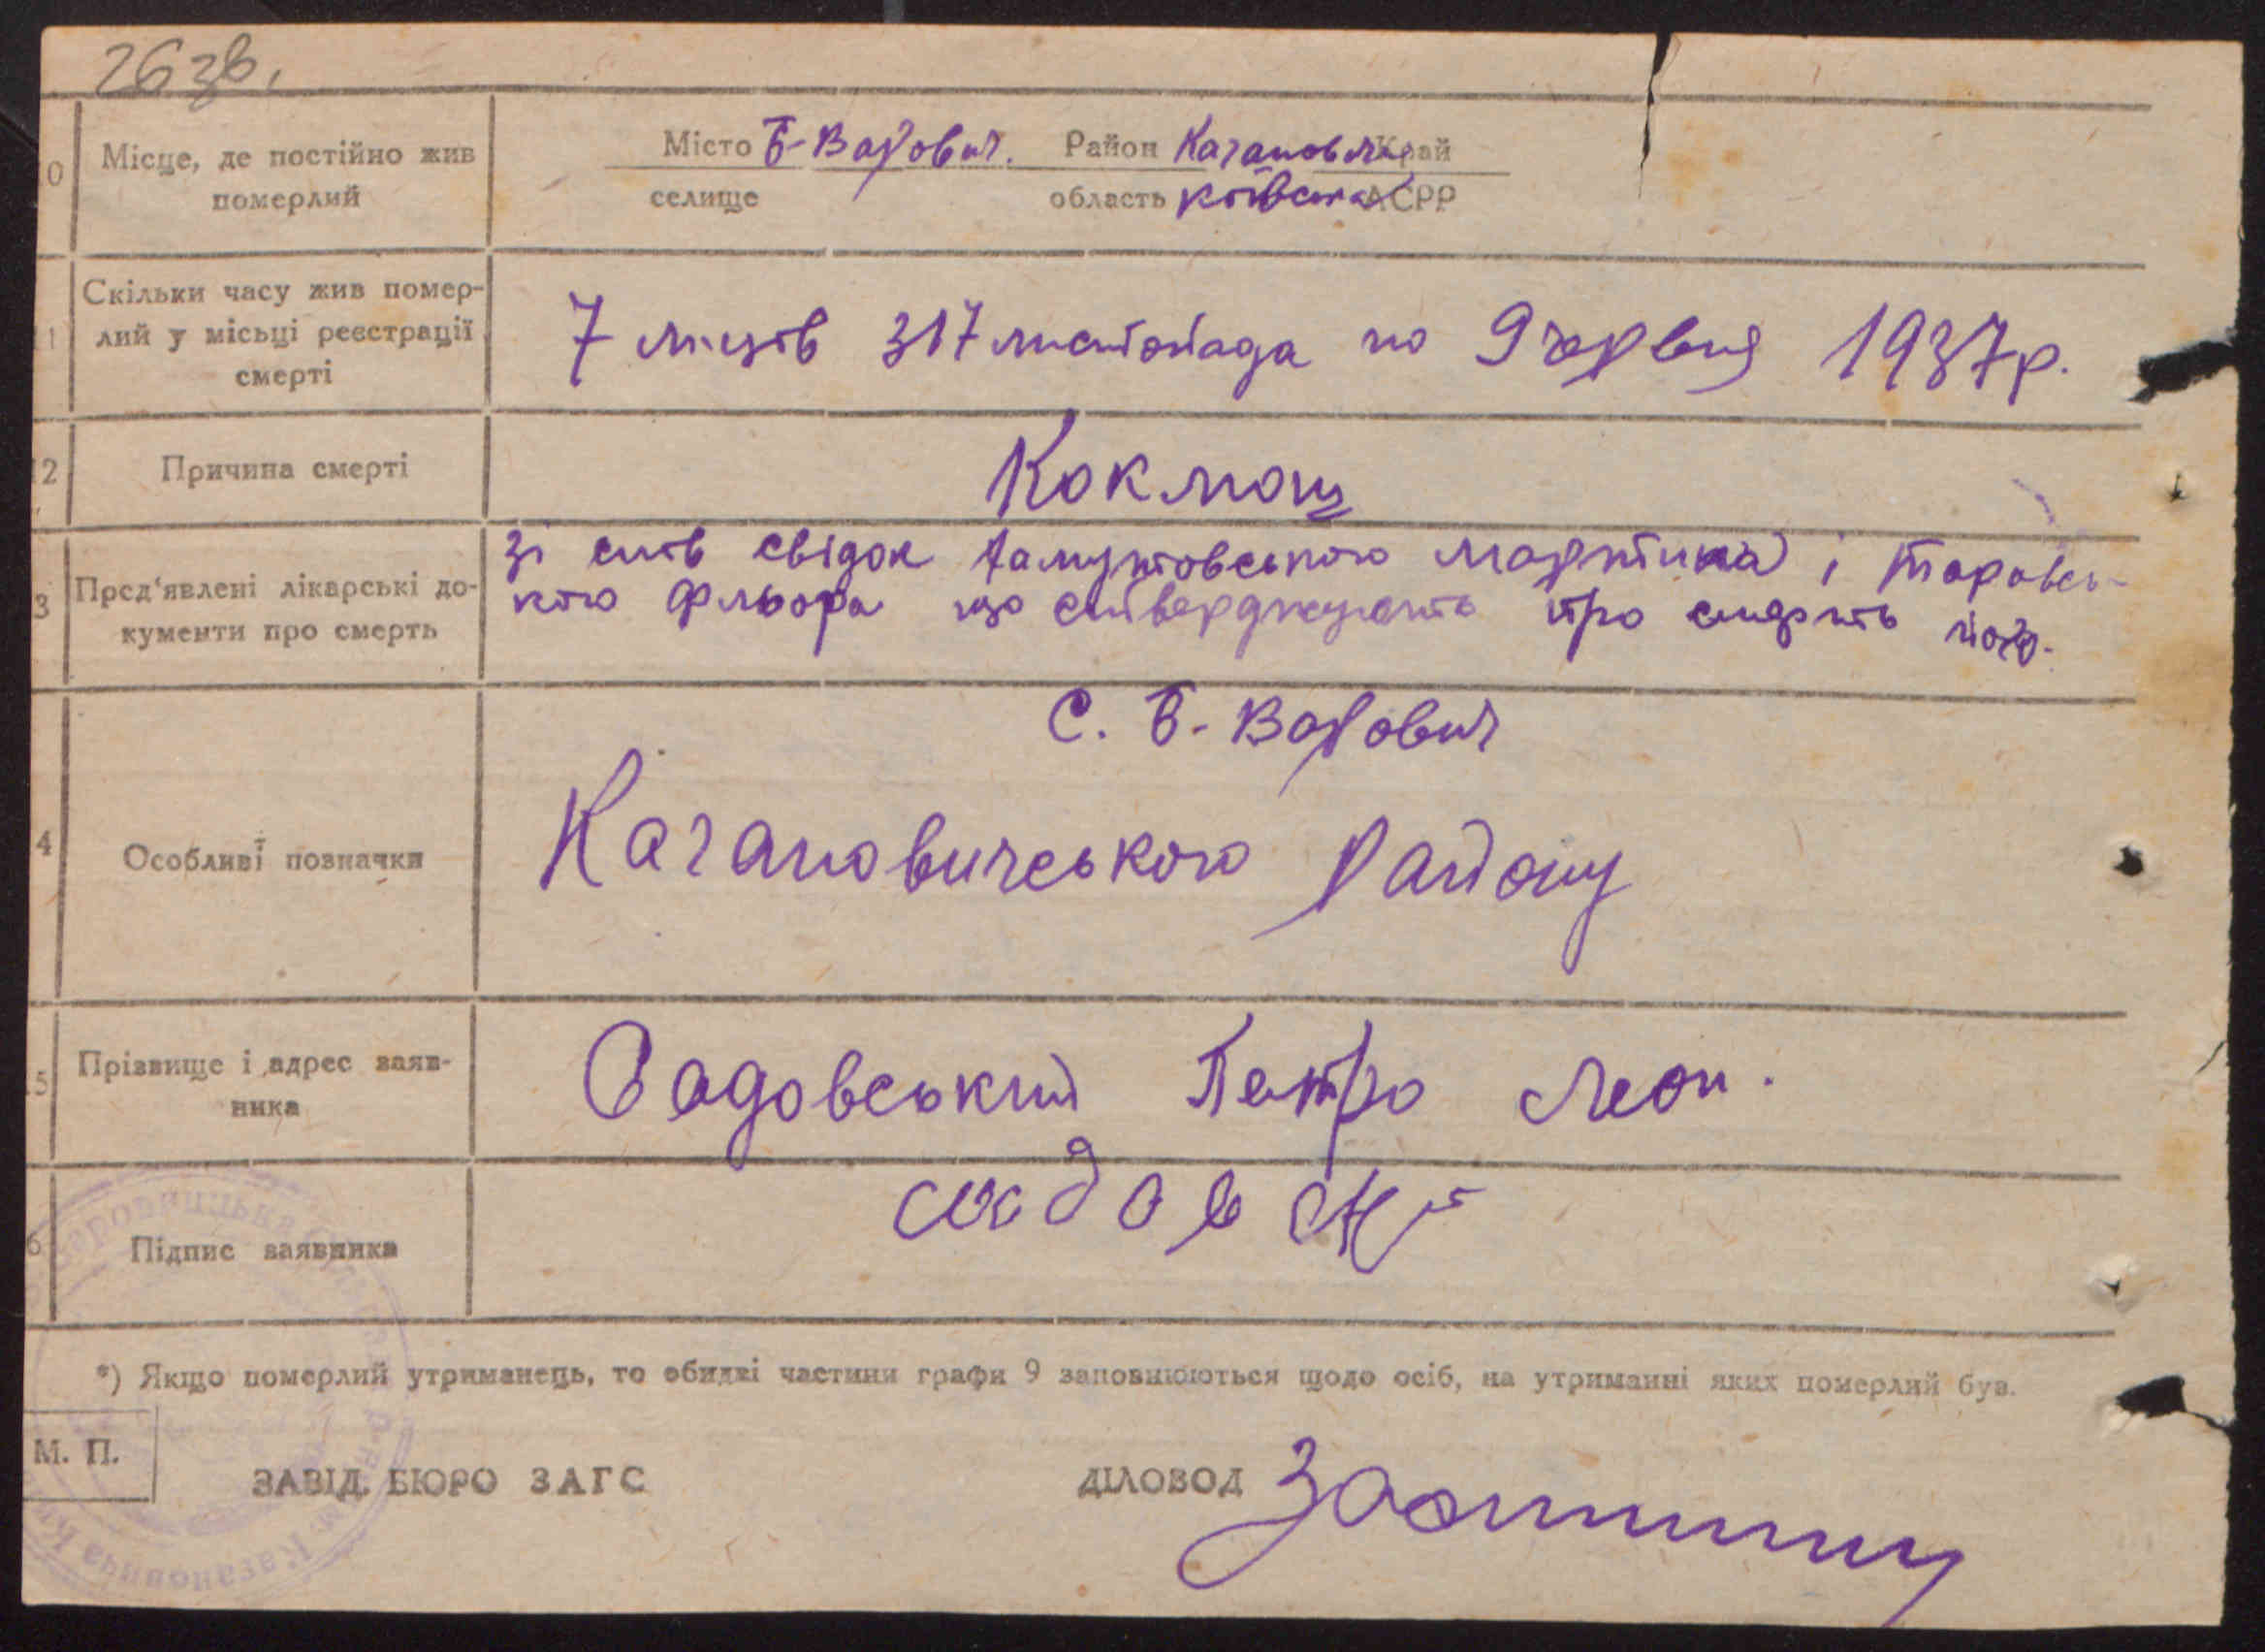 26 зв.
10 Місце, де постійно жив померлий
Місто Б-Варович. Район Каганович Край
селище область київська АСРР
11 Скільки часу жив померлий у місьці реєстрації смерті
7 місців з 17 листопада по 9 червня 1937 р.
12 Причина смерті
Коклюш
13 Пред'явлені лікарські документи про смерть
Зі слів свідок Мартина і
Фльора що стверджують про смерть його.
14 Особливі позначки
С. Б-Варович
Кагановичського району
15 Прізвище і адрес заявника
Садовський Петро Леон.
16 Підпис заявника
садовский
*) Якщо померлий утриманець, то обидві частини графи 9 заповнюються щодо осіб, на утриманні яких померлий був.
М. П.
ЗАВІД. БЮРО ЗАГС ДІЛОВОД